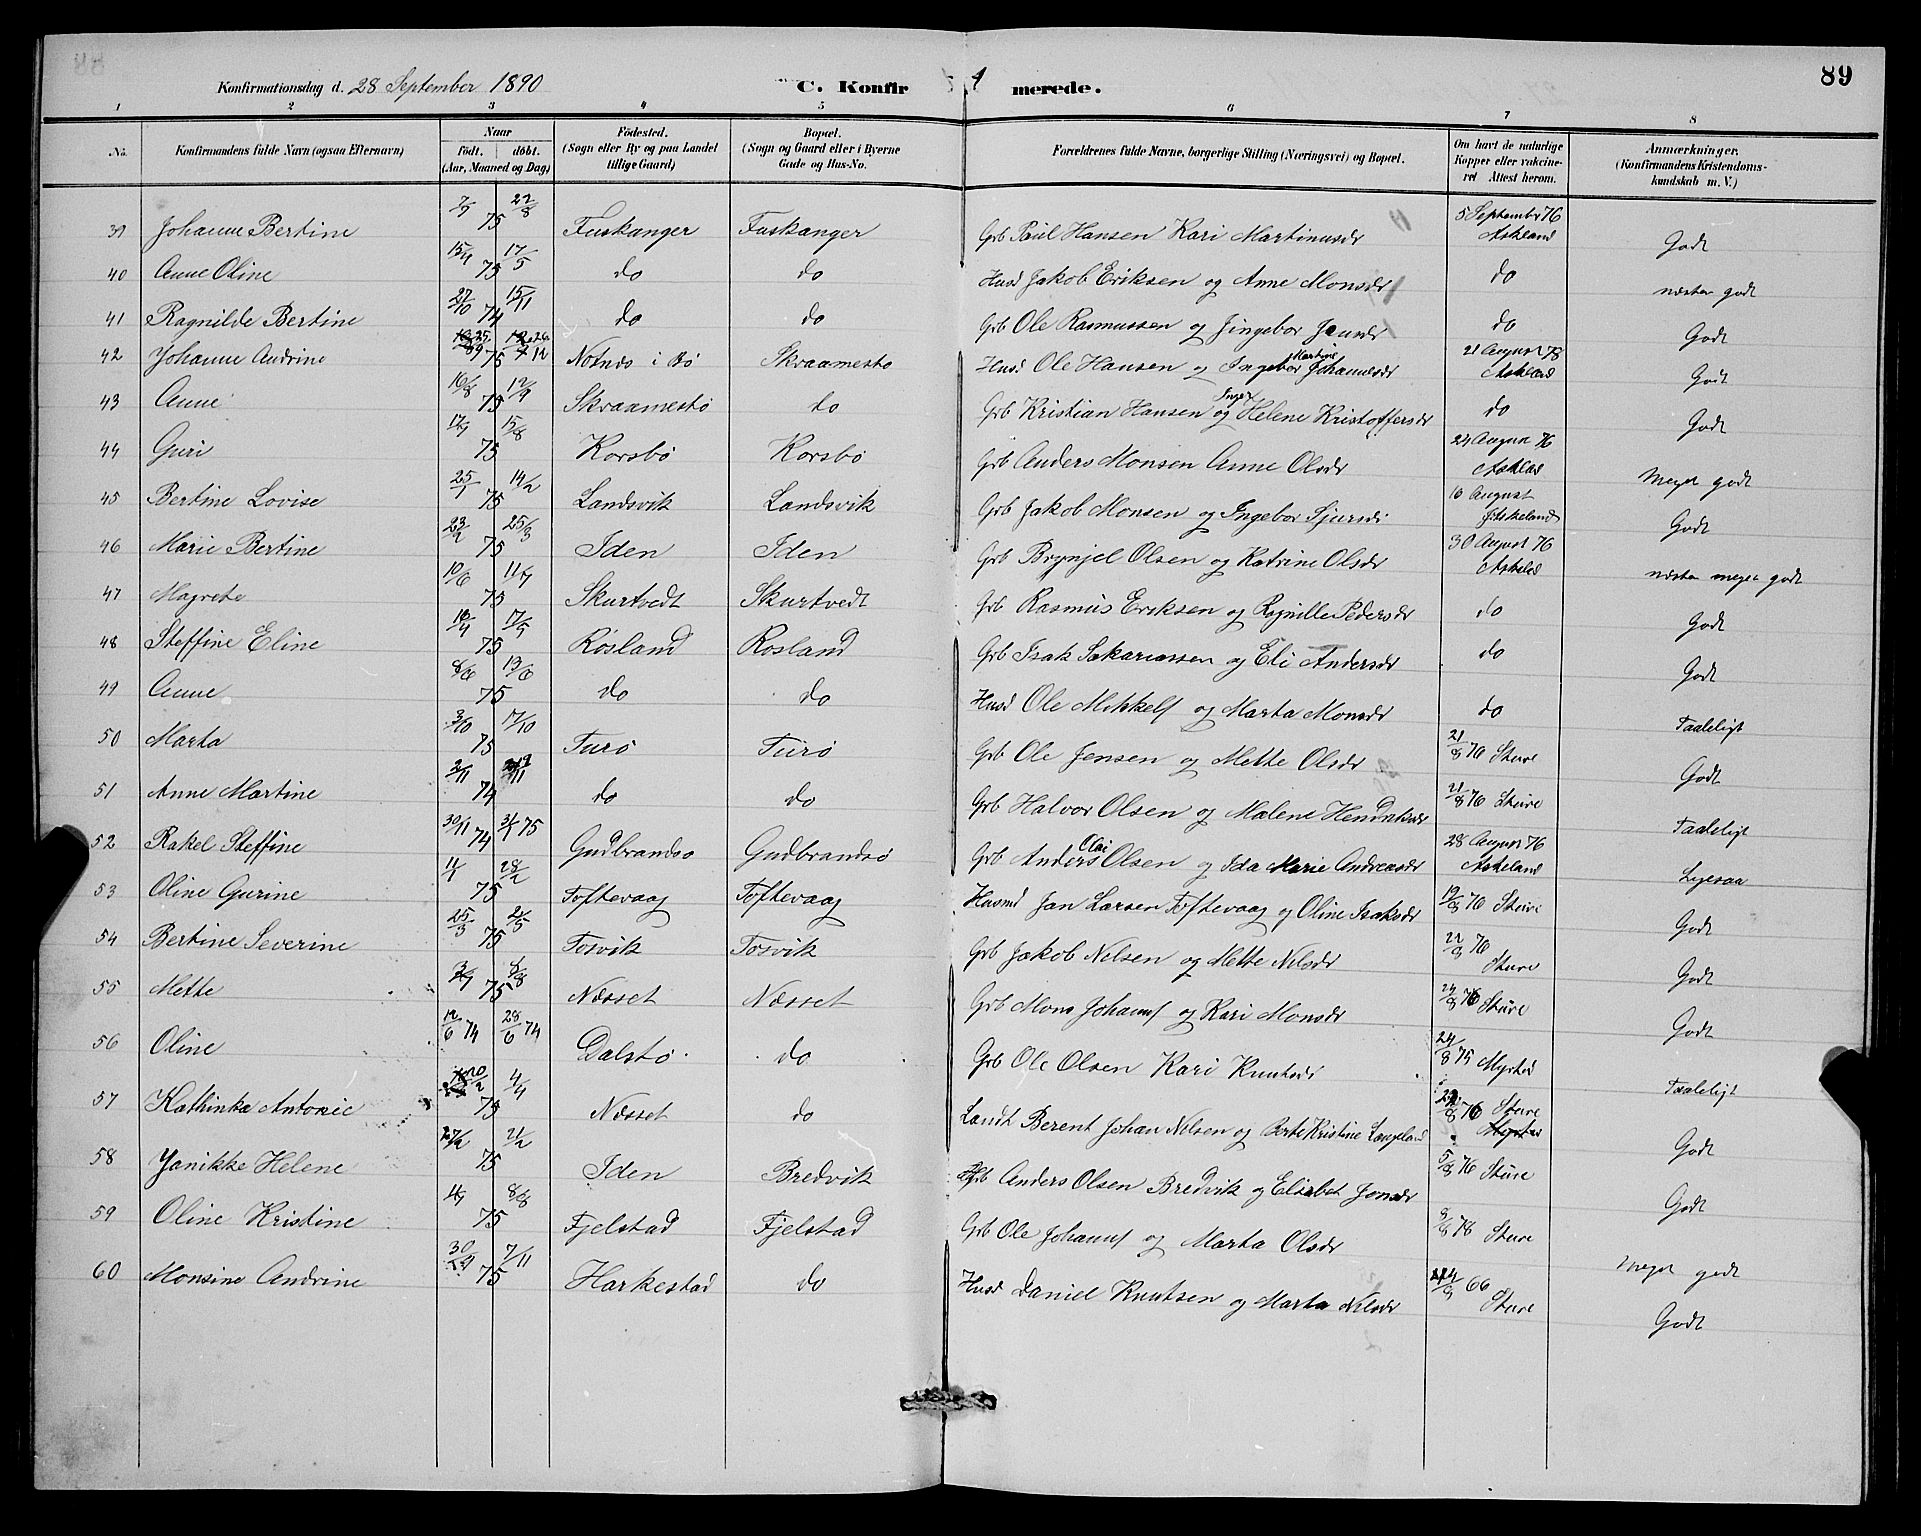 89
Konfirmationsdag d. 28 September 1890 C. Konfirmerede.
1 2 3 4 5 6 7 8
No. Konfirmandens fulde Navn (ogsaa Efternavn) Naar födt. döbt. (Aar, Maaned og Dag) Födested. (Sogn eller By og paa Landet tillige Gaard) Bopæl. (Sogn og Gaard eller i Byerne Gade og Hus-No. Forældrenes fulde Navne, borgerlige Stilling (Næringsvei) og Bopæl. Om havt de naturlige Kopper eller vakcineret Attest herom. Anmærkninger. (Konfirmandens Kristendomskundskab m. V.)
39 Johanne Bertine 75 Fuskanger Fuskanger Grb Paul Hansen Kari Martinusdr 5 Septembr 76 Askeland Godt
40 Anne Oline 15/4 17/5 75 do do Husd Jakob Eriksen og Anne Monsdr do næsten godt
41 Ragnilde Bertine 27/10 15/11 74 do do Grb Ole Rasmussen og Jngebor Jensdr do Godt
42 Johanne Andrine 75 Notnæs i Bø Skraamestø Husd Ole Hansen og Ingebor Martine Johannesdr 21 August 78 Askeland Godt
43 Anne 16/8 12/9 75 Skraamestø do Grb Kristian Hansen og Inger Helene Kristoffersdr do Godt
44 Guri 15/8 75 Korsbø Korsbø Grb Anders Monsen Anne Olsdr 24 August 76 Askelad Meget godt
45 Bertine Lovise 25/1 14/2 75 Landsvik Landsvik Grb Jakob Monsen og Ingebor Sjursdr 16 August Askeland Godt
46 Marie Bertine 23/2 25/3 75 Iden Iden Grb Brynjel Olsen og Katrine Olsdr 30 August 76 Askelad næsten meget godt
47 Magrete 10/6 11/7 75 Skurtvedt Skurtvedt Grb Rasmus Eriksen og Ragnille Pedersdr do Godt
48 Steffine Eline 75 Røsland Rosland Grb Isak Sakariassen og Eli Andersdr do Godt
49 Anne 8/6 13/6 75 do do Husd Ole Mikkels og Marta Monsdr do Taaleligt
50 Marta 3/10 17/10 75 Turø Turø Grb Ole Jensen og Mette Olsdr 21/8 76 Sture Godt
51 Anne Martine 2/11 74 do do Grb Halvor Olsen og Malene Hendriksdr 21/8 76 Sture Taaleligt
52 Rakel Steffine 30/11 74 3/1 75 Gudbrandsø Gudbrandsø Grb Anders Olai Olsen og Ida Marie Andreasdr 28 August 76 Askeland
53 Oline Gurine 28/2 75 Toftevaag Toftevaag Husmd Jan Larsen Toftevaag og Oline Isaksdr 19/8 76 Sture Godt
54 Bertine Severine 25/3 2/5 75 Tosvik Tosvik Grb Jakob Nilsen og Mette Nilsdr 76 Sture Godt
55 Mette 75 Næsset Næsset Grb Mons Johanns og Kari Monsdr 24/8 76 Sture Godt
56 Oline 12/6 74 28/6 74 Dalstø do Grb Ole Olsen Kari Knutsdr 24/8 75 Myrtad Taaleligt
57 Kathinka Antonie 20/2 4/4 75 Næsset do Landh Berent Johan Nilsen og Berte Kristine Langeland 22/8 76 Sture Godt
58 Janikke Helene 21/2 75 Iden Bredvik Grb Anders Olsen Bredvik og Elisabet Jonsdr 76 Sture Godt
59 Oline Kristine 8/8 75 Fjelstad Fjelstad Grb Ole Johanns og Marta Olsdr 78 Sture Meget godt
60 Monsine Andrine 7/11 75 Harkestad do Husd Daniel Knutsen og Marta Nilsdr 66 Sture Godt